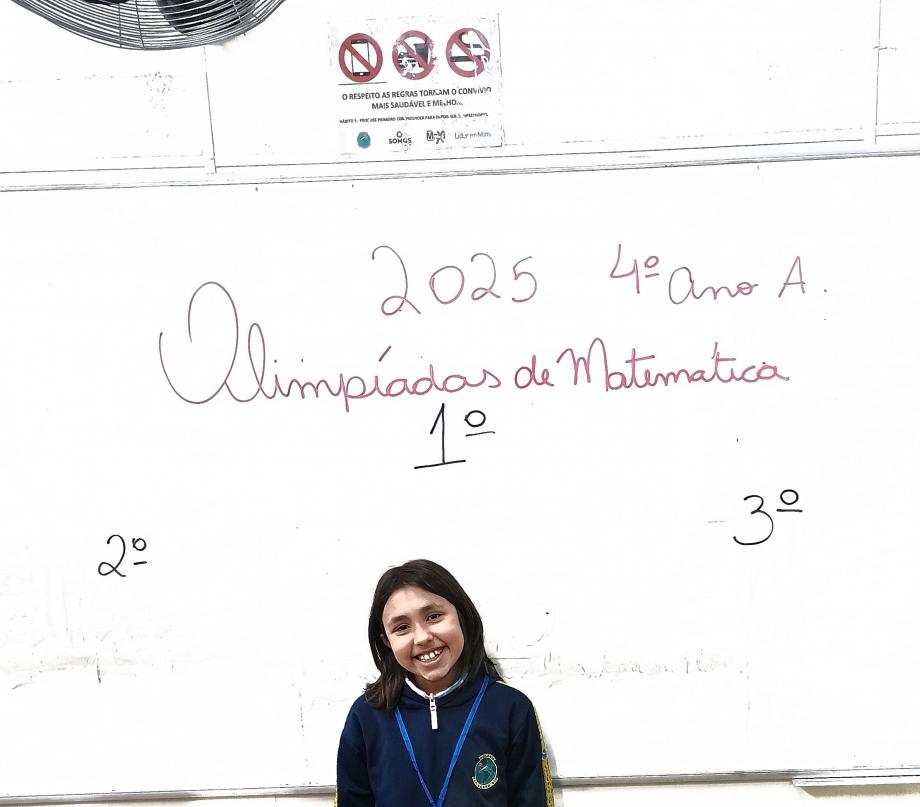 O RESPEITO AS REGRAS TORNAM O CONVIVIO
MAIS SAUDÁVEL E MELHOR.
HÁBITO 5 - PROCURE PRIMEIRO COMPREENDER PARA DEPOIS SER
SOMOS
Líder em Mim
2025 4º Ano A.
Olimpíadas de Matemática
1º
2º
3º